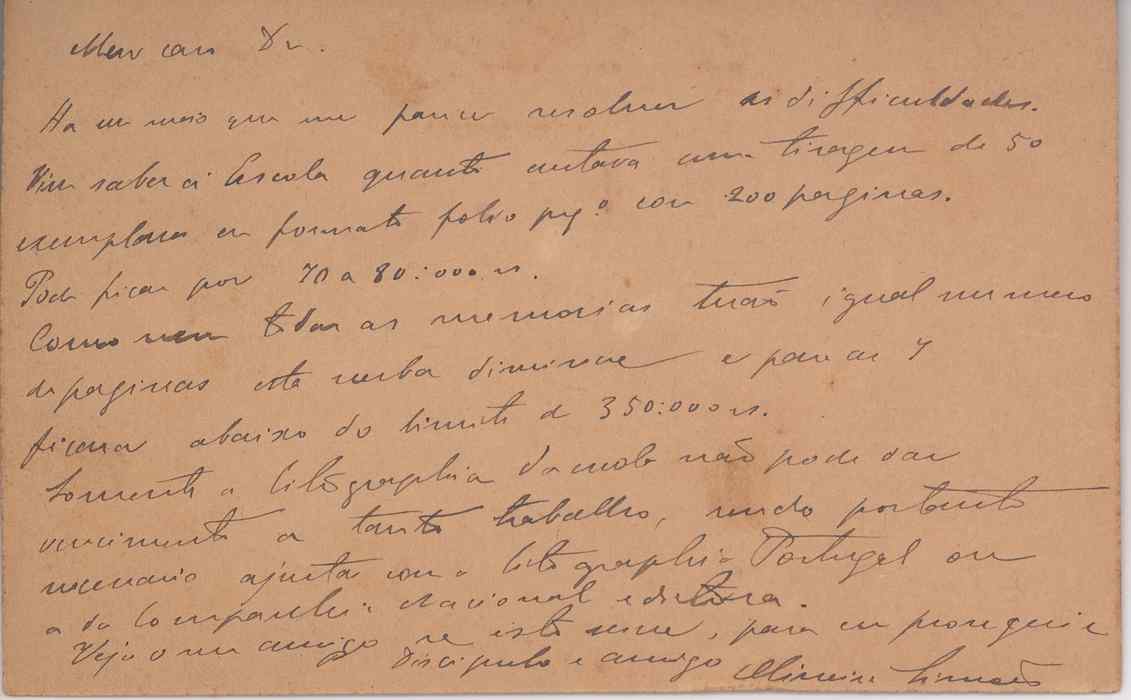 Meu caro Dr.
Ha um meio que me parece resolver as difficuldades.
Vim saber á Escola quanto custava uma tiragem de 50
exemplares em formato folio peq.º com 200 paginas.
Pode ficar por 70 a 80:000 rs.
Como nem todas as memorias terão igual numero
de paginas esta verba diminue e para as 4
ficara abaixo do limite de 350:000 rs.
Somente a litographia da escola não pode dar
vencimento a tanto trabalho, sendo portanto
necessario ajustar com a litographia Portugal ou
a da Companhia Nacional editora.
Veja o meu amigo se isto serve, para eu proseguir
Discipulo e amigo Oliveira Simões